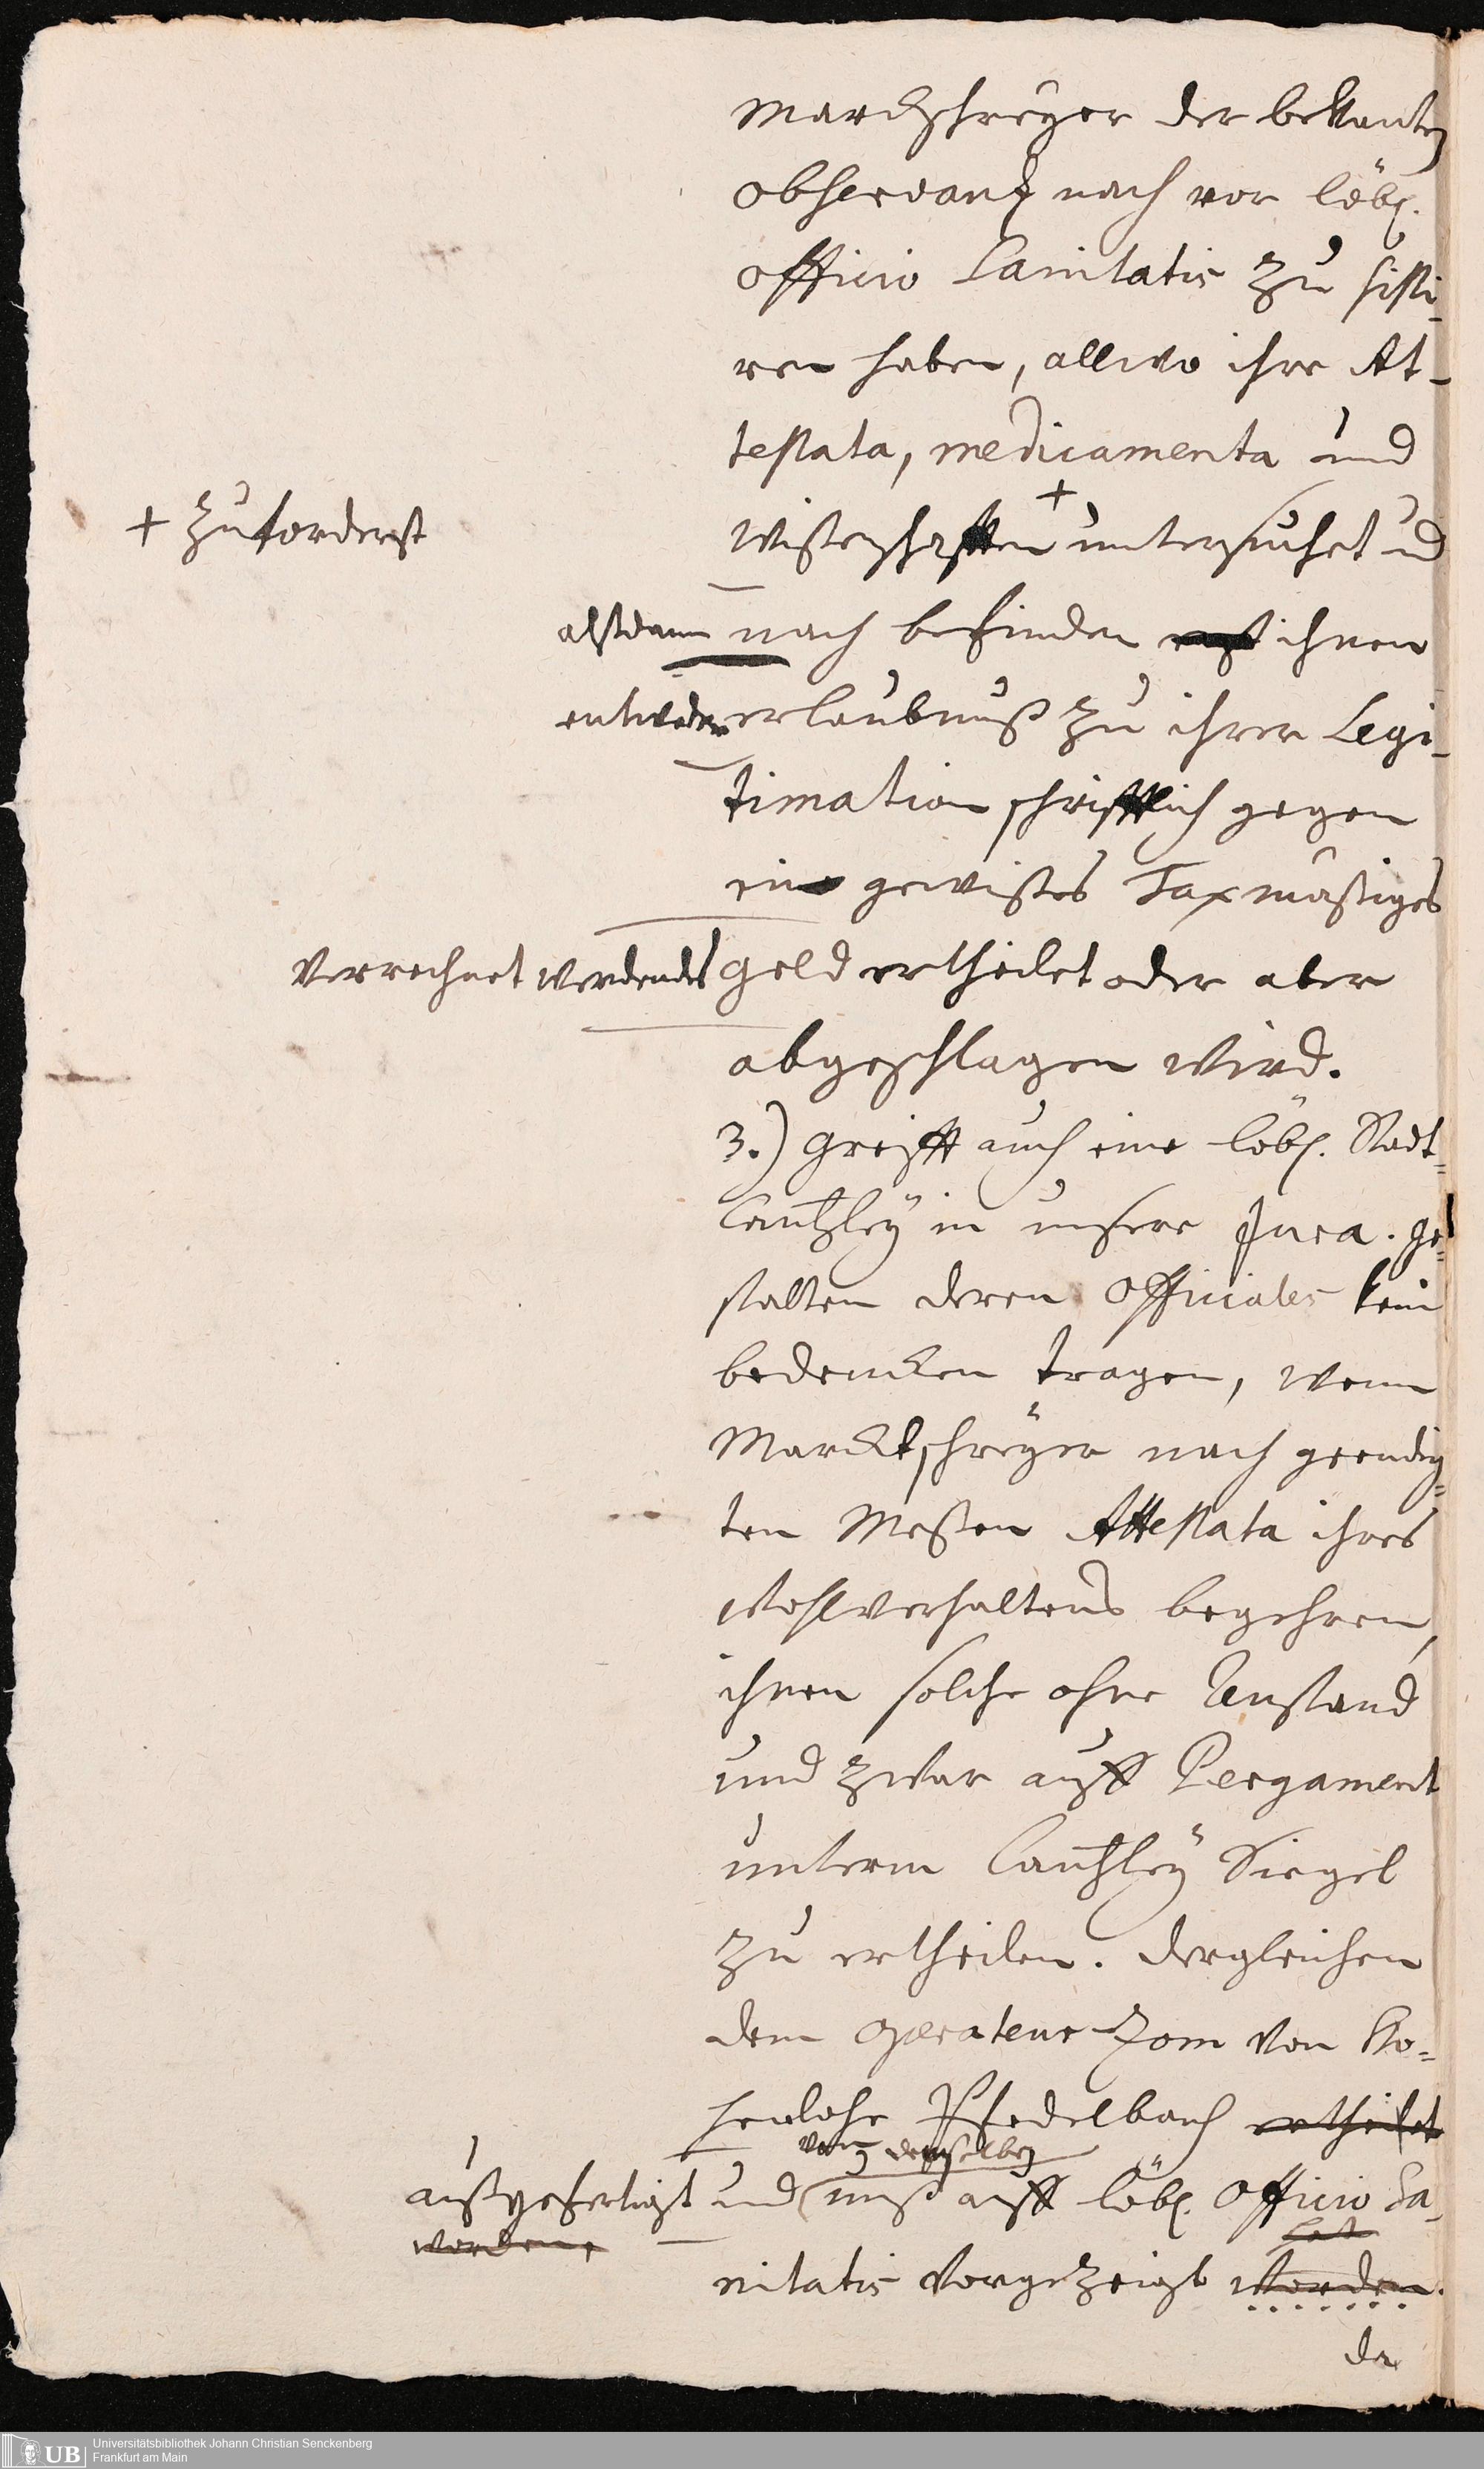 Marckschreÿer der bekanten
observantz nach vor löbl.
Officio Sanitatis zu sisti-
ren haben, allwo ihre At-
testata, medicamenta und
+ zuforderst
wißenschafften + untersuchet ud
alßdann nach befinden ihnen
entweder erlaubnuß zu ihrer Legi-
timation schrifftlich gegen
ein gewißes Taxmäßiges
verrechnet werdendes geld ertheilet oder aber
abgeschlagen wird.
3.) Greifft auch eine löbl. Stadt-
Cantzleÿ in unsere Jura. ge-
stalten deren Officiales kein
bedencken tragen, wenn
Marcktschreÿer nach geendig-
ten Meßen Attestata ihres
wohlverhaltens begehren,
ihnen solche ohne Anstand
und zwar auff Pergament
unterm Cantzleÿ Siegel
zu ertheilen. dergleichen
dem Operateur Zom von Ho-
henlohe Pfedelbach ertheilet
von demselben
außgefertigt und unß auff löbl. Officio Sa-
worden,
hat
nitatis vorgezeigt worden.
da
UB Universitätsbibliothek Johann Christian Senckenberg
Frankfurt am Main